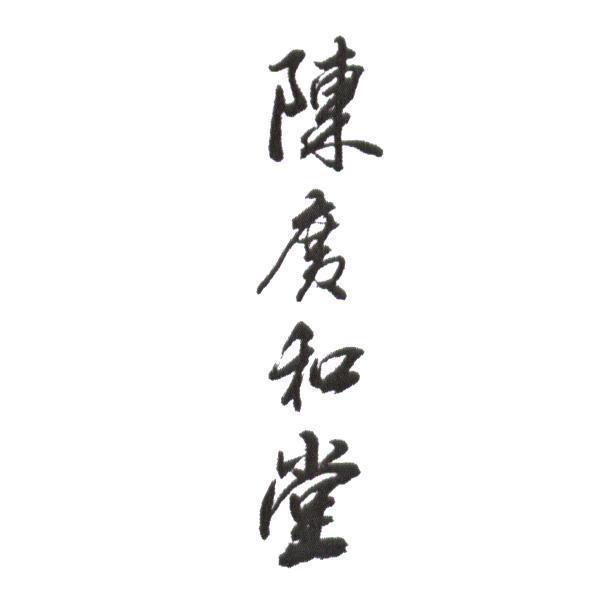 陳廣和堂